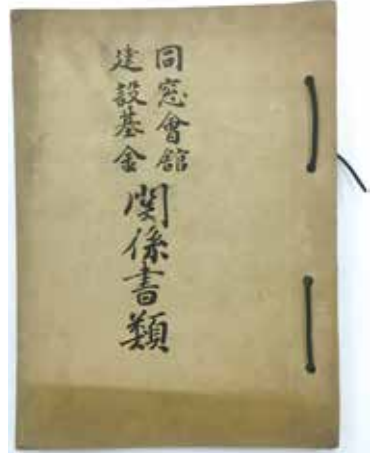 同窓會館
建設基金
関係書類